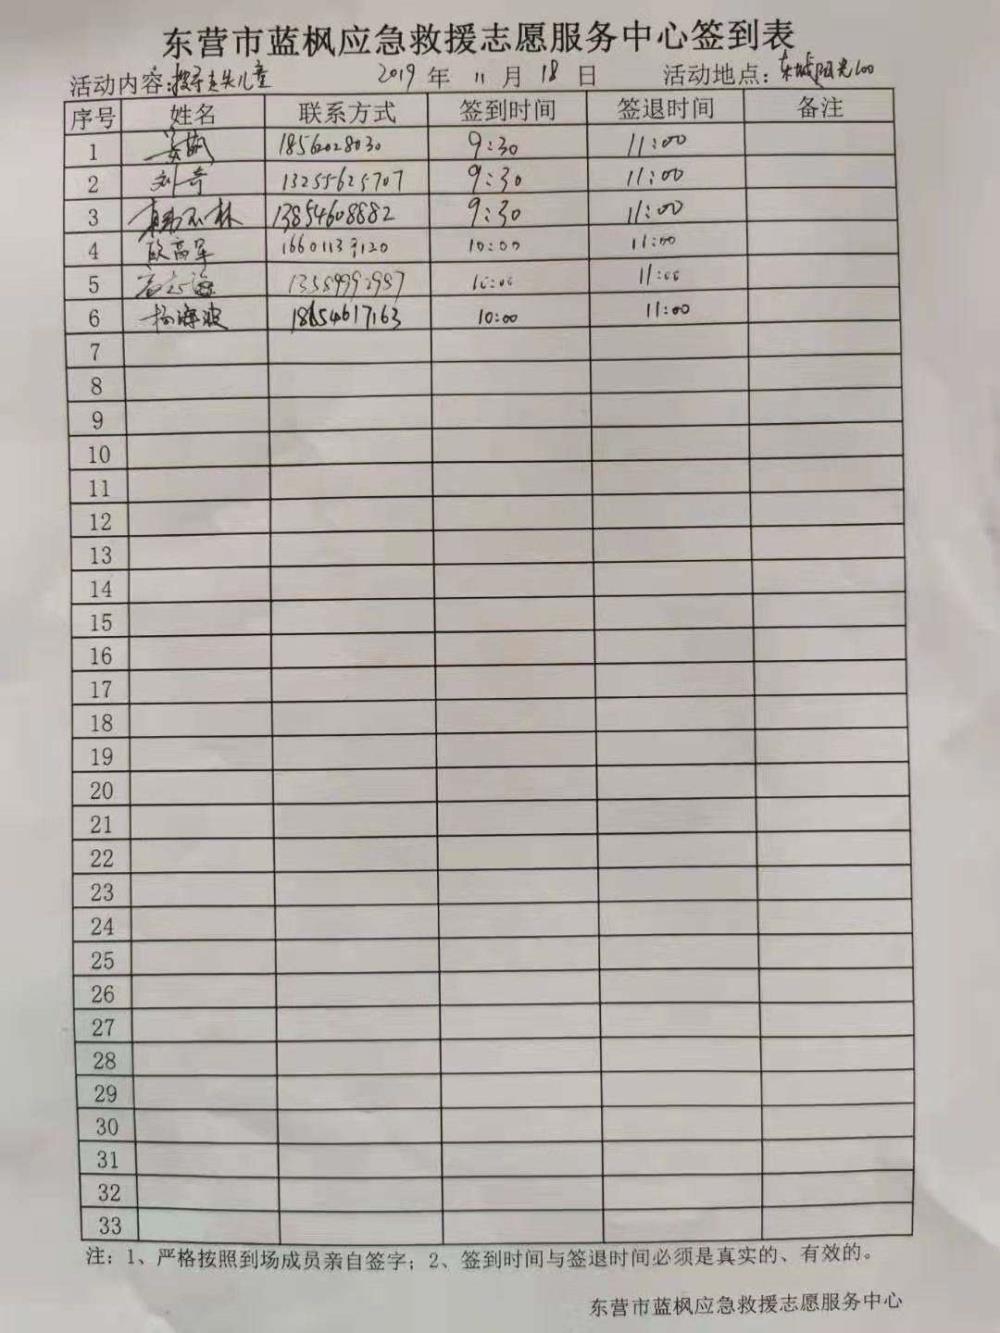 东营市蓝枫应急救援志愿服务中心签到表
活动内容:搜寻走失儿童 2019 年 11 月 18 日 活动地点:东城阳光100
序号 姓名 联系方式 签到时间 签退时间 备注
1 18562028030 9:30 11:00
2 刘奇 13255625707 9:30 11:00
3 13854608882 9:30 11:00
4 欧高军 10:00 11:00
5 13589992987 10:00 11:00
6 杨海波 18654617163 10:00 11:00
7
8
9
10
11
12
13
14
15
16
17
18
19
20
21
22
23
24
25
26
27
28
29
30
31
32
33
注:1、严格按照到场成员亲自签字;2、签到时间与签退时间必须是真实的、有效的。
东营市蓝枫应急救援志愿服务中心